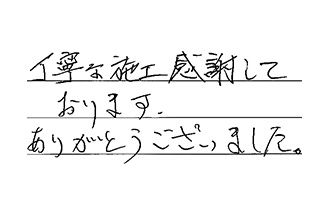 丁寧な施工感謝して
おります.
ありがとうございました。